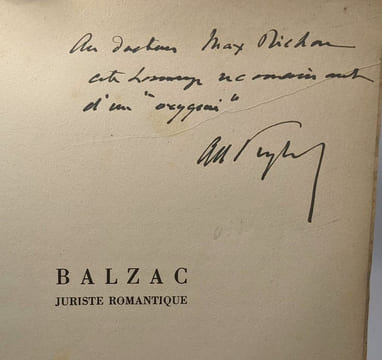 Au docteur Max Richou
cet hommage reconnaissant
d'un "oxygéné"
BALZAC
JURISTE ROMANTIQUE